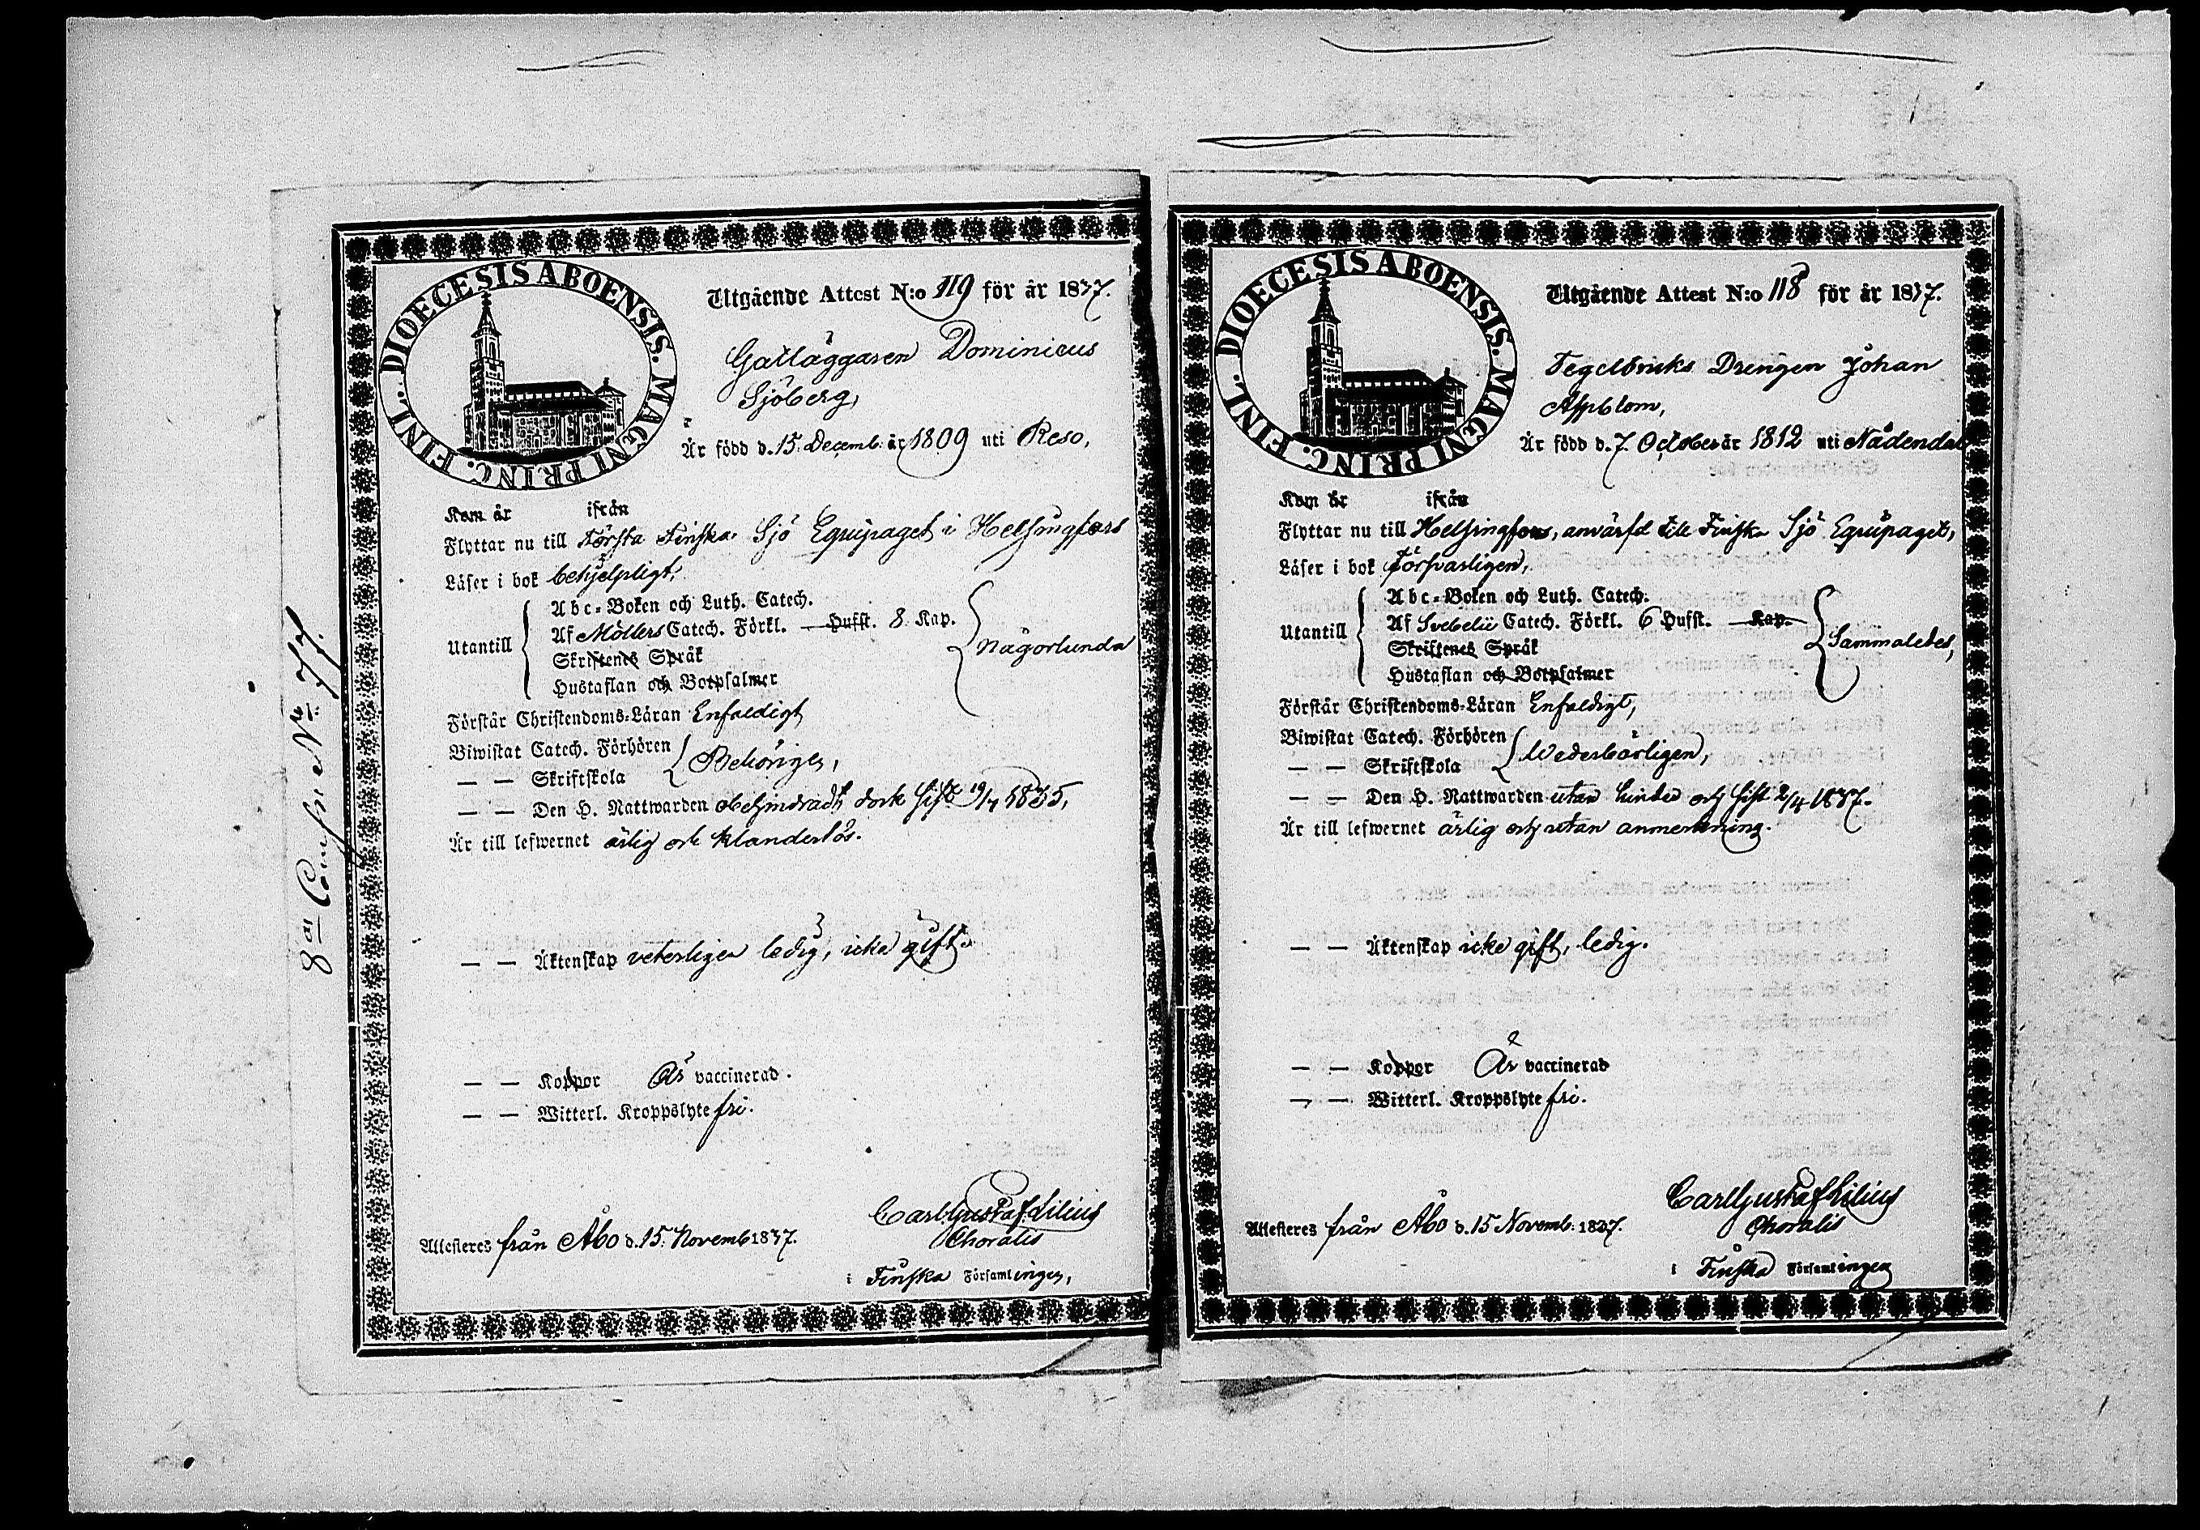 DIOECESIS ABOENSIS. MAGNI PRINC. FINL.
Utgående Attest N:o 119 för år 1837.
Gatläggaren Dominicus
Sjöberg,
Är född d. 15. Decemb. år 1809 uti Reso,
Kom år ifrån
Flyttar nu till Första Finska Sjö Equipaget i Helsingfors
Läser i bok behjelpligt,
Abc-Boken och Luth. Catech.
Utantill Af Möllers Catech. Förkl. Hufst. 8. Kap. någorlunda
Skriftenes Språk
Hustaflan och Botpsalmer
Förstår Christendoms-Läran Enfaldigt
Biwistat Catech. Förhören
— — Skriftskola Behörigen,
— — Den H. Nattwarden obehindradt, dock sist 19/7 1835,
Är till lefwernet ärlig och klanderlös.
— — Äktenskap veterligen ledig, icke gift.
— — Koppor Är vaccinerad.
— — Witterl. Kroppslyte fri.
Attesteres från Åbo d. 15. Novemb 1837.
Carl Gustaf Lilius
Choralis
i Finska Församlingen,
8de Comp:ne No 77.
DIOECESIS ABOENSIS. MAGNI PRINC. FINL.
Utgående Attest N:o 118 för år 1837.
Tegelbruks Drengen Johan
Appblom,
Är född d. 7. October år 1812 uti Nådendal
Kom år ifrån
Flyttar nu till Helsingfors, anvärfd till Finska Sjö Equipaget,
Läser i bok försvarligen,
Abc-Boken och Luth. Catech.
Utantill Af Svebelii Catech. Förkl. 6 Hufst. Kap. Sammaledes,
Skriftenes Språk
Hustaflan och Botpsalmer
Förstår Christendoms-Läran Enfaldigt,
Biwistat Catech. Förhören
— — Skriftskola Wederbörligen,
— — Den H. Nattwarden utan hinder och sist 2/4 1837.
Är till lefwernet ärlig och utan anmerkning.
— — Äktenskap icke gift, ledig.
— — Koppor Är vaccinerad
— — Witterl. Kroppslyte fri.
Attesteres från Åbo d. 15 Novemb: 1837.
Carl Gustaf Lilius
Choralis
i Finska Församlingen